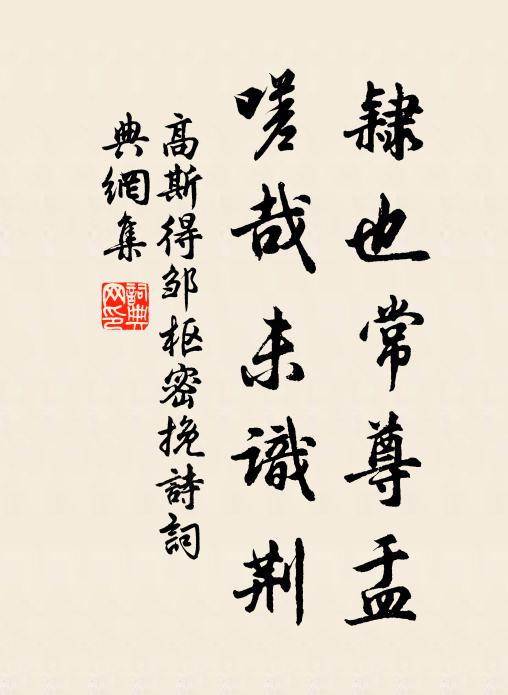 隸也常尊盂
嗟哉未識荆
高斯得邹枢密挽詩詞
典網集
詞典網印